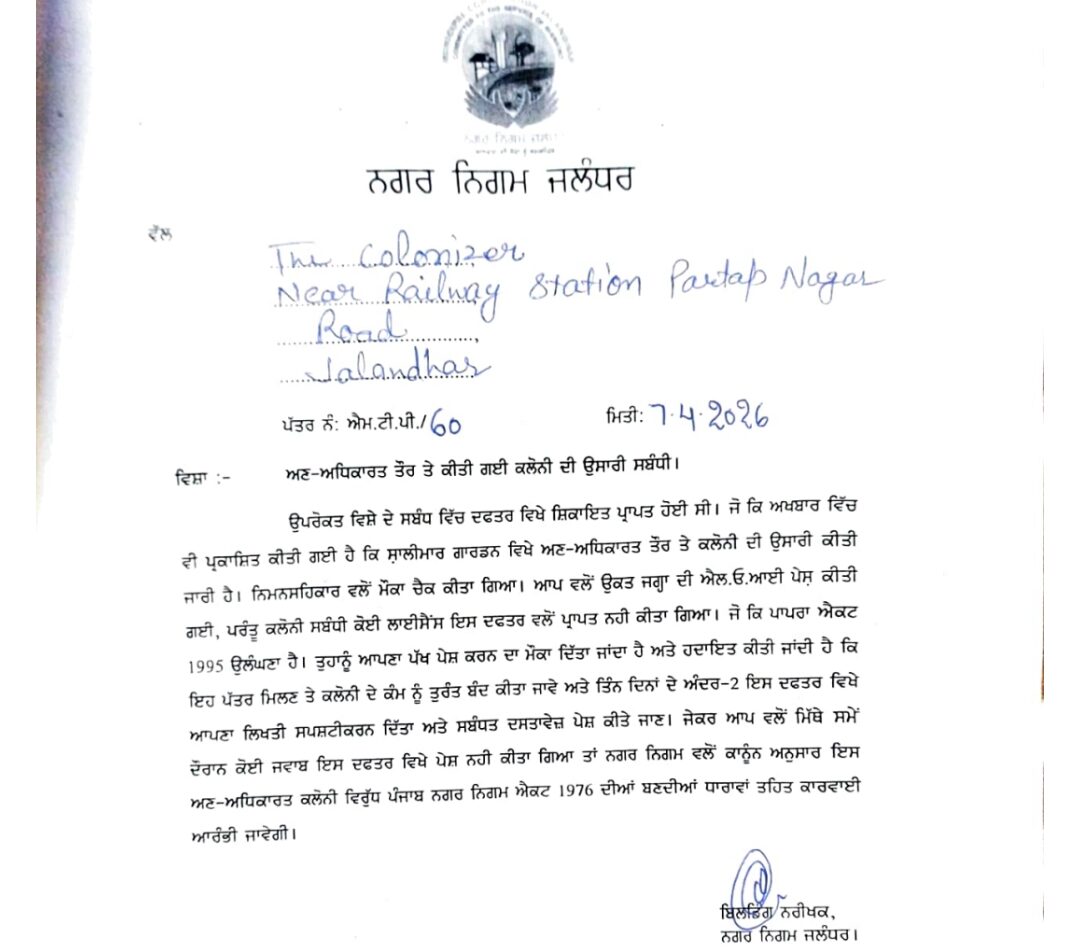 ਨਗਰ ਨਿਗਮ ਜਲੰਧਰ
ਵੱਲ
The Colonizer
Near Railway Station Partap Nagar
Road
Jalandhar
ਪੱਤਰ ਨੰ: ਐਮ.ਟੀ.ਪੀ./60 ਮਿਤੀ: 7.4.2026
ਵਿਸ਼ਾ :- ਅਣ-ਅਧਿਕਾਰਤ ਤੌਰ ਤੇ ਕੀਤੀ ਗਈ ਕਲੋਨੀ ਦੀ ਉਸਾਰੀ ਸਬੰਧੀ।
ਉਪਰੋਕਤ ਵਿਸ਼ੇ ਦੇ ਸਬੰਧ ਵਿੱਚ ਦਫਤਰ ਵਿਖੇ ਸ਼ਿਕਾਇਤ ਪ੍ਰਾਪਤ ਹੋਈ ਸੀ। ਜੋ ਕਿ ਅਖਬਾਰ ਵਿੱਚ
ਵੀ ਪ੍ਰਕਾਸ਼ਿਤ ਕੀਤੀ ਗਈ ਹੈ ਕਿ ਸ਼ਾਲੀਮਾਰ ਗਾਰਡਨ ਵਿਖੇ ਅਣ-ਅਧਿਕਾਰਤ ਤੌਰ ਤੇ ਕਲੋਨੀ ਦੀ ਉਸਾਰੀ ਕੀਤੀ
ਜਾਰੀ ਹੈ। ਨਿਮਨਸਹਿਕਾਰ ਵਲੋਂ ਮੌਕਾ ਚੈਕ ਕੀਤਾ ਗਿਆ। ਆਪ ਵਲੋਂ ਉਕਤ ਜਗ੍ਹਾ ਦੀ ਐਲ.ਓ.ਆਈ ਪੇਸ਼ ਕੀਤੀ
ਗਈ, ਪਰੰਤੂ ਕਲੋਨੀ ਸਬੰਧੀ ਕੋਈ ਲਾਈਸੈਂਸ ਇਸ ਦਫਤਰ ਵਲੋਂ ਪ੍ਰਾਪਤ ਨਹੀ ਕੀਤਾ ਗਿਆ। ਜੋ ਕਿ ਪਾਪਰਾ ਐਕਟ
1995 ਉਲੰਘਣਾ ਹੈ। ਤੁਹਾਨੂੰ ਆਪਣਾ ਪੱਖ ਪੇਸ਼ ਕਰਨ ਦਾ ਮੌਕਾ ਦਿੱਤਾ ਜਾਂਦਾ ਹੈ ਅਤੇ ਹਦਾਇਤ ਕੀਤੀ ਜਾਂਦੀ ਹੈ ਕਿ
ਇਹ ਪੱਤਰ ਮਿਲਣ ਤੇ ਕਲੋਨੀ ਦੇ ਕੰਮ ਨੂੰ ਤੁਰੰਤ ਬੰਦ ਕੀਤਾ ਜਾਵੇ ਅਤੇ ਤਿੰਨ ਦਿਨਾਂ ਦੇ ਅੰਦਰ-2 ਇਸ ਦਫਤਰ ਵਿਖੇ
ਆਪਣਾ ਲਿਖਤੀ ਸਪਸ਼ਟੀਕਰਨ ਦਿੱਤਾ ਅਤੇ ਸਬੰਧਤ ਦਸਤਾਵੇਜ਼ ਪੇਸ਼ ਕੀਤੇ ਜਾਣ। ਜੇਕਰ ਆਪ ਵਲੋਂ ਮਿੱਥੇ ਸਮੇਂ
ਦੌਰਾਨ ਕੋਈ ਜਵਾਬ ਇਸ ਦਫਤਰ ਵਿਖੇ ਪੇਸ਼ ਨਹੀ ਕੀਤਾ ਗਿਆ ਤਾਂ ਨਗਰ ਨਿਗਮ ਵਲੋਂ ਕਾਨੂੰਨ ਅਨੁਸਾਰ ਇਸ
ਅਣ-ਅਧਿਕਾਰਤ ਕਲੋਨੀ ਵਿਰੁੱਧ ਪੰਜਾਬ ਨਗਰ ਨਿਗਮ ਐਕਟ 1976 ਦੀਆਂ ਬਣਦੀਆਂ ਧਾਰਾਵਾਂ ਤਹਿਤ ਕਾਰਵਾਈ
ਆਰੰਭੀ ਜਾਵੇਗੀ।
ਬਿਲਡਿੰਗ ਨਰੀਖਕ,
ਨਗਰ ਨਿਗਮ ਜਲੰਧਰ।